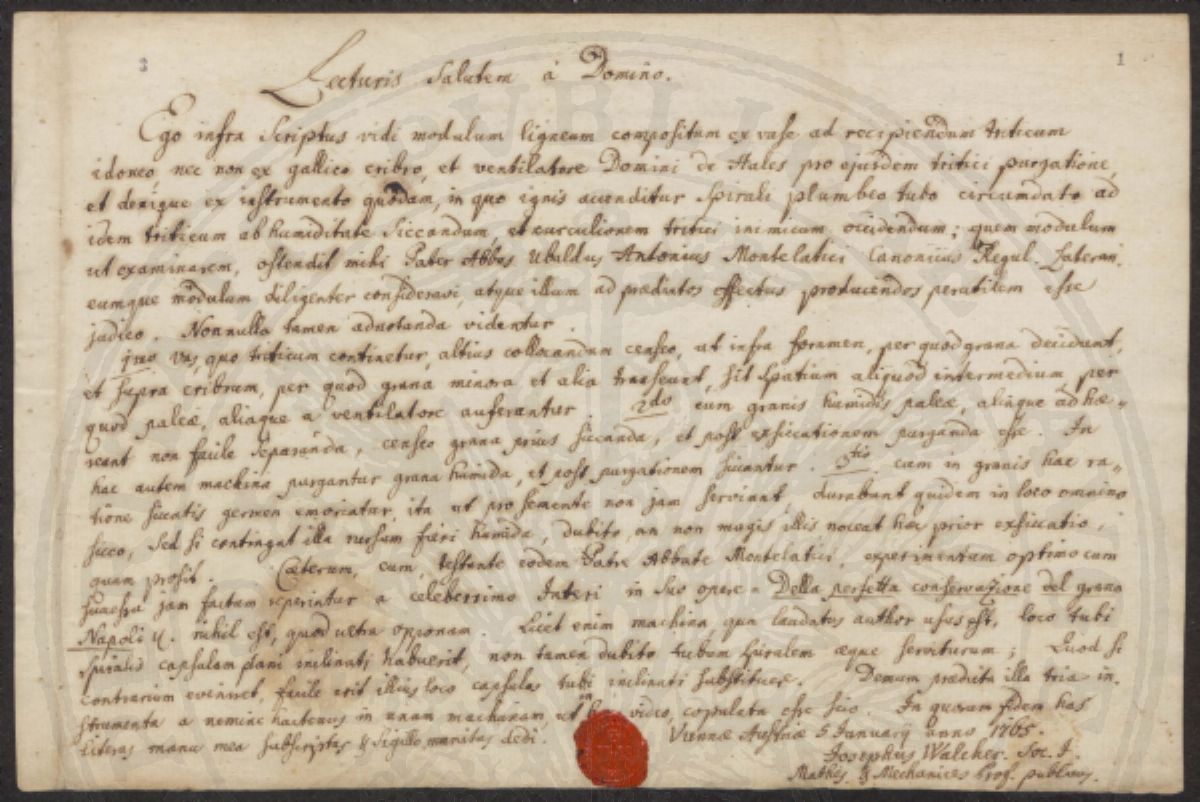 1
Lecturis Salutem à Domino.
Ego infra Scriptus vidi modulum ligneum compositum ex vase ad recipiendum triticum
idoneo, nec non ex gallico cribro, et ventilatore Domini de Hales pro ejusdem tritici purgatione,
et denique ex instrumento quodam, in quo ignis accenditur Spirali plumbeo tubo circumdato ad
idem triticum ab humiditate Siccandum et curculionem tritici inimicum occidendum; quem modulum
ut examinarem, ostendit mihi Pater Abbas Ubaldus Antonius Montelatici Canonicus Regul. Lateran.
eumque modulum diligenter consideravi, atque illum ad praedictos effectus producendos perutilem esse
judico. Nonnulla tamen adnotanda videntur.
1mo Vas, quo triticum continetur, altius collocandum censeo, ut infra foramen, per quod grana decidunt,
et supra cribrum, per quod grana minora et alia transeunt, sit spatium aliquod intermedium, per
quod paleae, aliaque a ventilatore auferantur. 2do cum granis humidis paleae, aliaque adhae-
reant non facile Separanda, censeo grana prius siccanda, et post exsiccationem purganda esse. In
hac autem machina purgantur grana humida, et post purgationem siccantur. 3tio cum in granis hac ra-
tione siccatis germen emoriatur, ita ut pro semente non jam serviant, durabunt quidem in loco omnino
sicco, sed si contingat illa rursum fieri humida, dubito, an non magis illis noceat haec prior exsiccatio,
quam prosit. Caeterum, cum, testante eodem Patre Abbate Montelatici, experimentum optimo cum
successu jam factum reperiatur a celeberrimo Interi in suo opere - Della perfetta conservazione del grano
Napoli &. nihil est, quod ultra opponam. Licet enim machina qua laudatus author usus est, loco tubi
spiralis capsulam plani inclinati habuerit, non tamen dubito tubum spiralem aeque serviturum; Quod si
contrarium evinceret, facile erit illius loco capsulas tubi inclinati substituere. Demum praedicta illa tria in-
strumenta a nemine hactenus in unam machinam, ut hic video, copulata esse scio. In quorum fidem has
literas manu mea subscriptas & Sigillo munitas dedi. Viennae Austriae 5 January anno 1765.
Josephus Walcher. Soc. J.
Mathes. & Mechanices Prof. publicus.